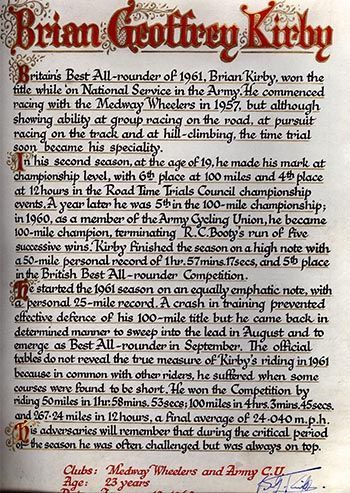 Brian Geoffrey Kirby
Britain's Best All-rounder of 1961, Brian Kirby, won the
title while on National Service in the Army. He commenced
racing with the Medway Wheelers in 1957, but although
showing ability at group racing on the road, at pursuit
racing on the track and at hill-climbing, the time trial
soon became his speciality.
In his second season, at the age of 19, he made his mark at
championship level, with 6th place at 100 miles and 4th place
at 12 hours in the Road Time Trials Council championship
events. A year later he was 5th in the 100-mile championship;
in 1960, as a member of the Army Cycling Union, he became
100-mile champion, terminating R.C. Booty's run of five
successive wins. Kirby finished the season on a high note with
a 50-mile personal record of 1hr. 57mins. 17secs, and 5th place
in the British Best All-rounder Competition.
He started the 1961 season on an equally emphatic note, with
a personal 25-mile record. A crash in training prevented
effective defence of his 100-mile title but he came back in
determined manner to sweep into the lead in August and to
emerge as Best All-rounder in September. The official
tables do not reveal the true measure of Kirby's riding in 1961
because in common with other riders, he suffered when some
courses were found to be short. He won the Competition by
riding 50 miles in 1hr. 58mins. 53secs; 100 miles in 4hrs. 3mins. 45secs.
and 267·24 miles in 12 hours, a final average of 24·040 m.p.h.
His adversaries will remember that during the critical period
of the season he was often challenged but was always on top.
Clubs: Medway Wheelers and Army C.U.
Age: 23 years